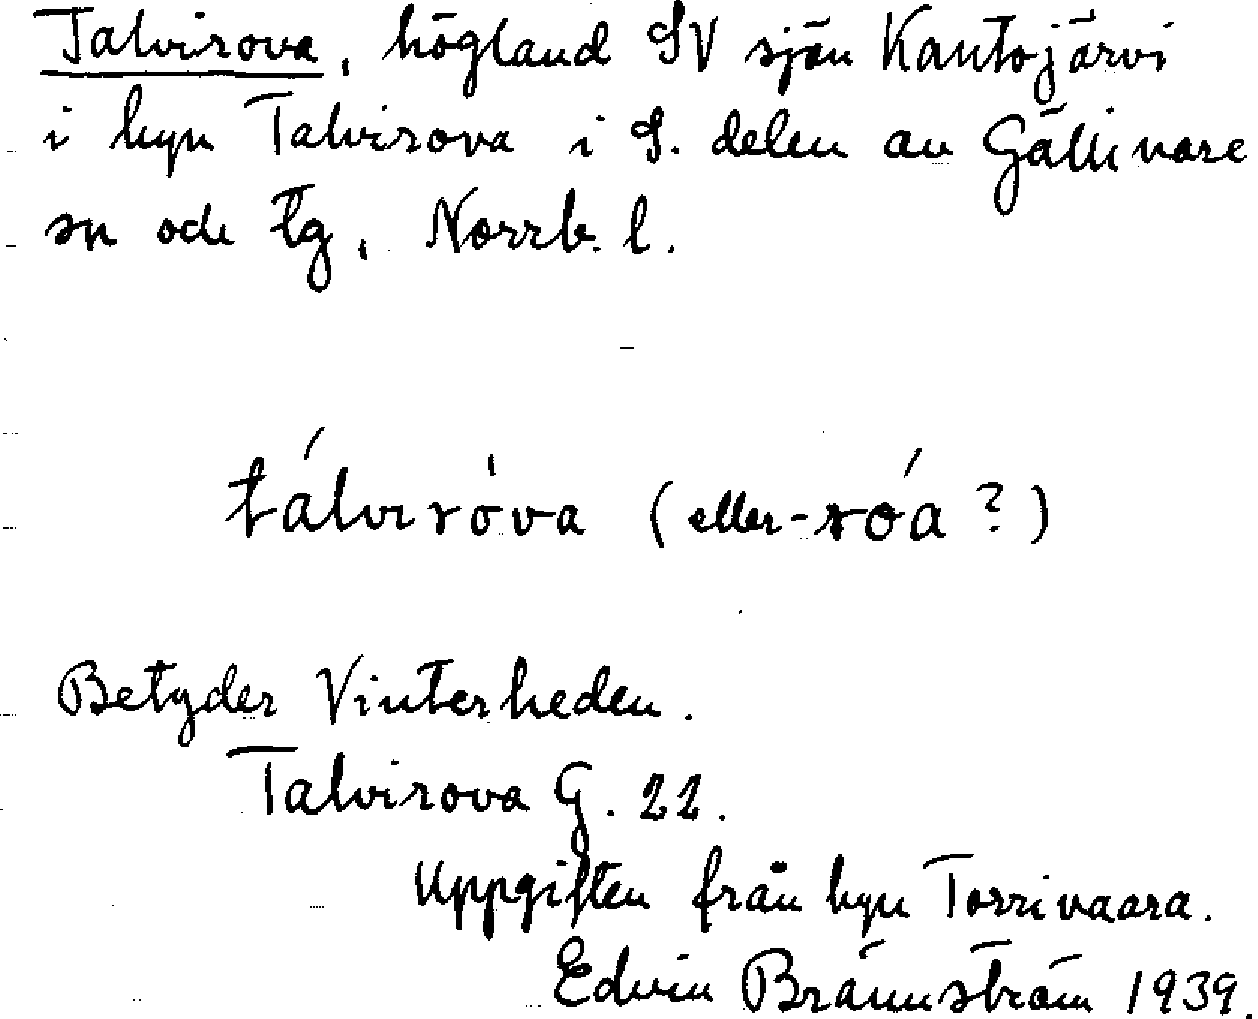 Talvirova, högland SV sjön Kantojärvi
i byn Talvirova i S. delen av Gällivare
sn och tg, Norrb. l.
tálviròva (eller -róa ?)
Betyder Vinterheden.
Talvirova G. 22.
Uppgiften från byn Torrivaara.
Edvin Brännström 1939.